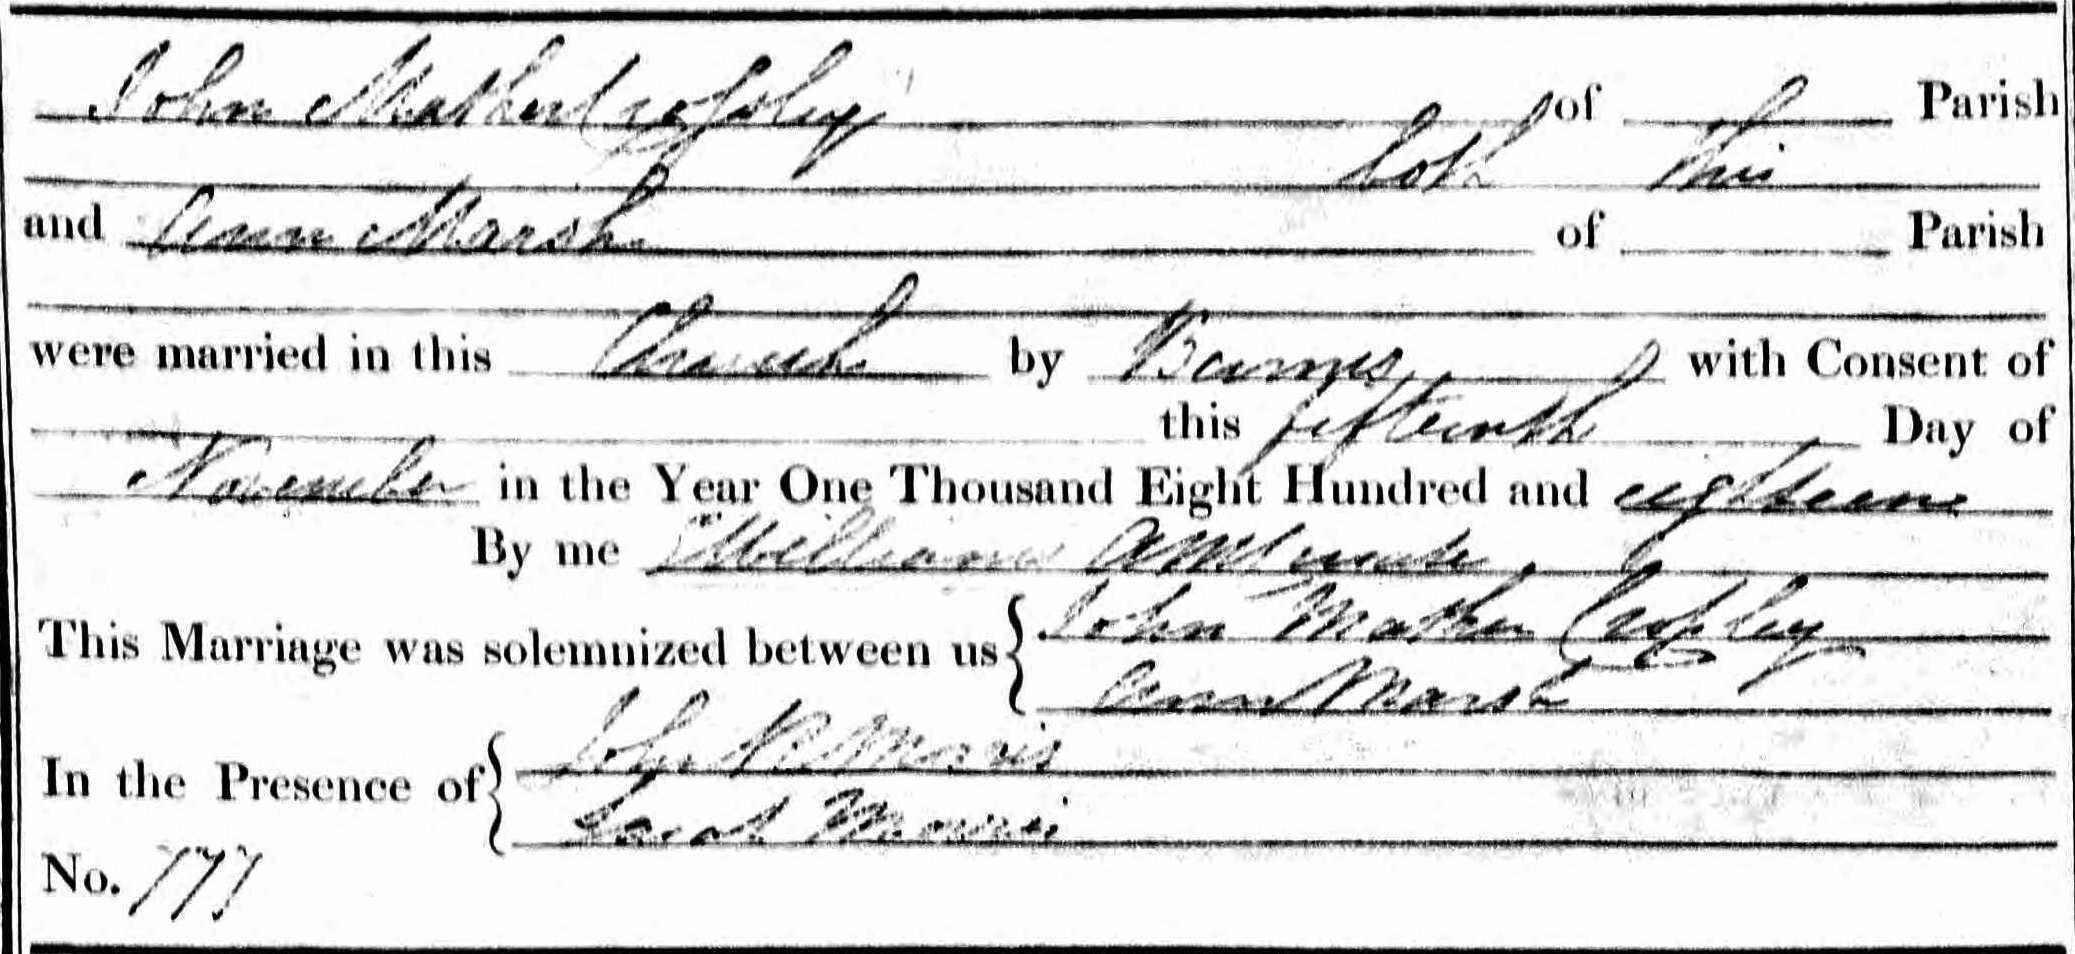 John Mather Cropley of Parish
both this
and Ann Marsh of Parish
were married in this Church by Banns with Consent of
this fifteenth Day of
November in the Year One Thousand Eight Hundred and eighteen
By me William
This Marriage was solemnized between us { John Mather Cropley
Ann Marsh
In the Presence of { John R Morris
Sarah Morris
No. 777